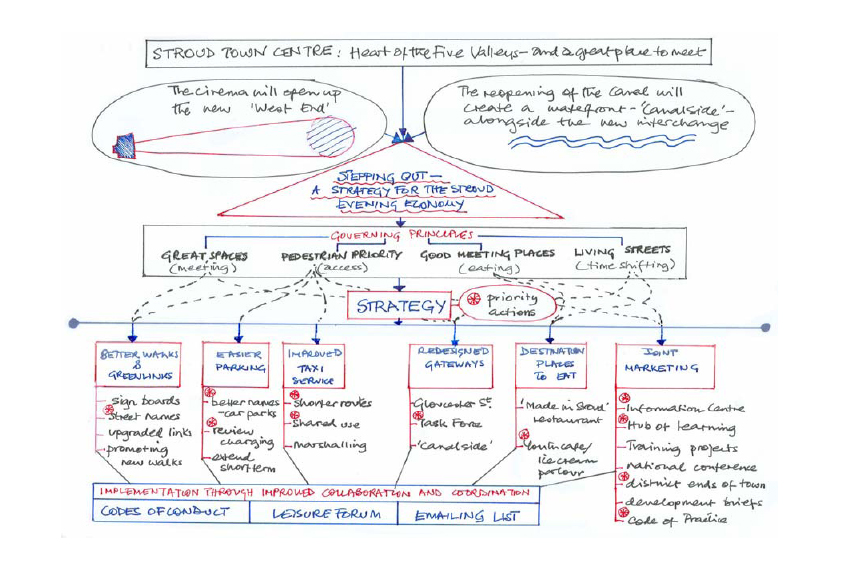 STROUD TOWN CENTRE: Heart of the Five Valleys - and a great place to meet
The cinema will open up
the new 'West End'
The reopening of the Canal will
create a waterfront - 'Canalside' -
alongside the new interchange
STEPPING OUT -
A STRATEGY FOR THE STROUD
EVENING ECONOMY
GOVERNING PRINCIPLES
GREAT SPACES
(meeting)
PEDESTRIAN PRIORITY
(access)
GOOD MEETING PLACES
(eating)
LIVING STREETS
(time shifting)
STRATEGY
priority
actions
BETTER WALKS
&
GREENLINKS
sign boards
street names
upgraded links
promoting
new walks
EASIER
PARKING
better names
- car parks
review
charging
extend
short term
IMPROVED
TAXI
SERVICE
shorter routes
shared use
marshalling
REDESIGNED
GATEWAYS
Gloucester St.
Task Force
'Canalside'
DESTINATION
PLACES
TO EAT
'Made in Stroud'
restaurant
Youth cafe/
ice cream
parlour
JOINT
MARKETING
Information Centre
Hub of learning
Training projects
national conference
district ends of town
development briefs
Code of Practice
IMPLEMENTATION THROUGH IMPROVED COLLABORATION AND COORDINATION
CODES OF CONDUCT
LEISURE FORUM
EMAILING LIST